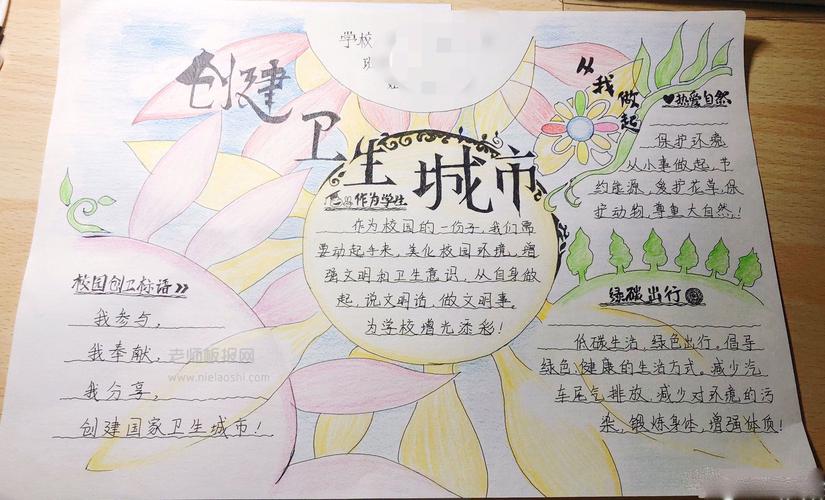 学校
班
创建
卫生城市
从我做起
热爱自然
保护环境
从小事做起,节
约能源,爱护花草,保
护动物,尊重大自然!
作为学生
作为校园的一份子,我们需
要动起手来,美化校园环境,增
强文明和卫生意识,从自身做
起,说文明话,做文明事。
为学校增光添彩!
校园创卫标语
我参与,
我奉献,
我分享,
创建国家卫生城市!
绿碳出行
低碳生活,绿色出行。倡导
绿色、健康的生活方式。减少汽
车尾气排放,减少对环境的污
染,锻炼身体,增强体质!
老师板报网
www.nielaoshi.com